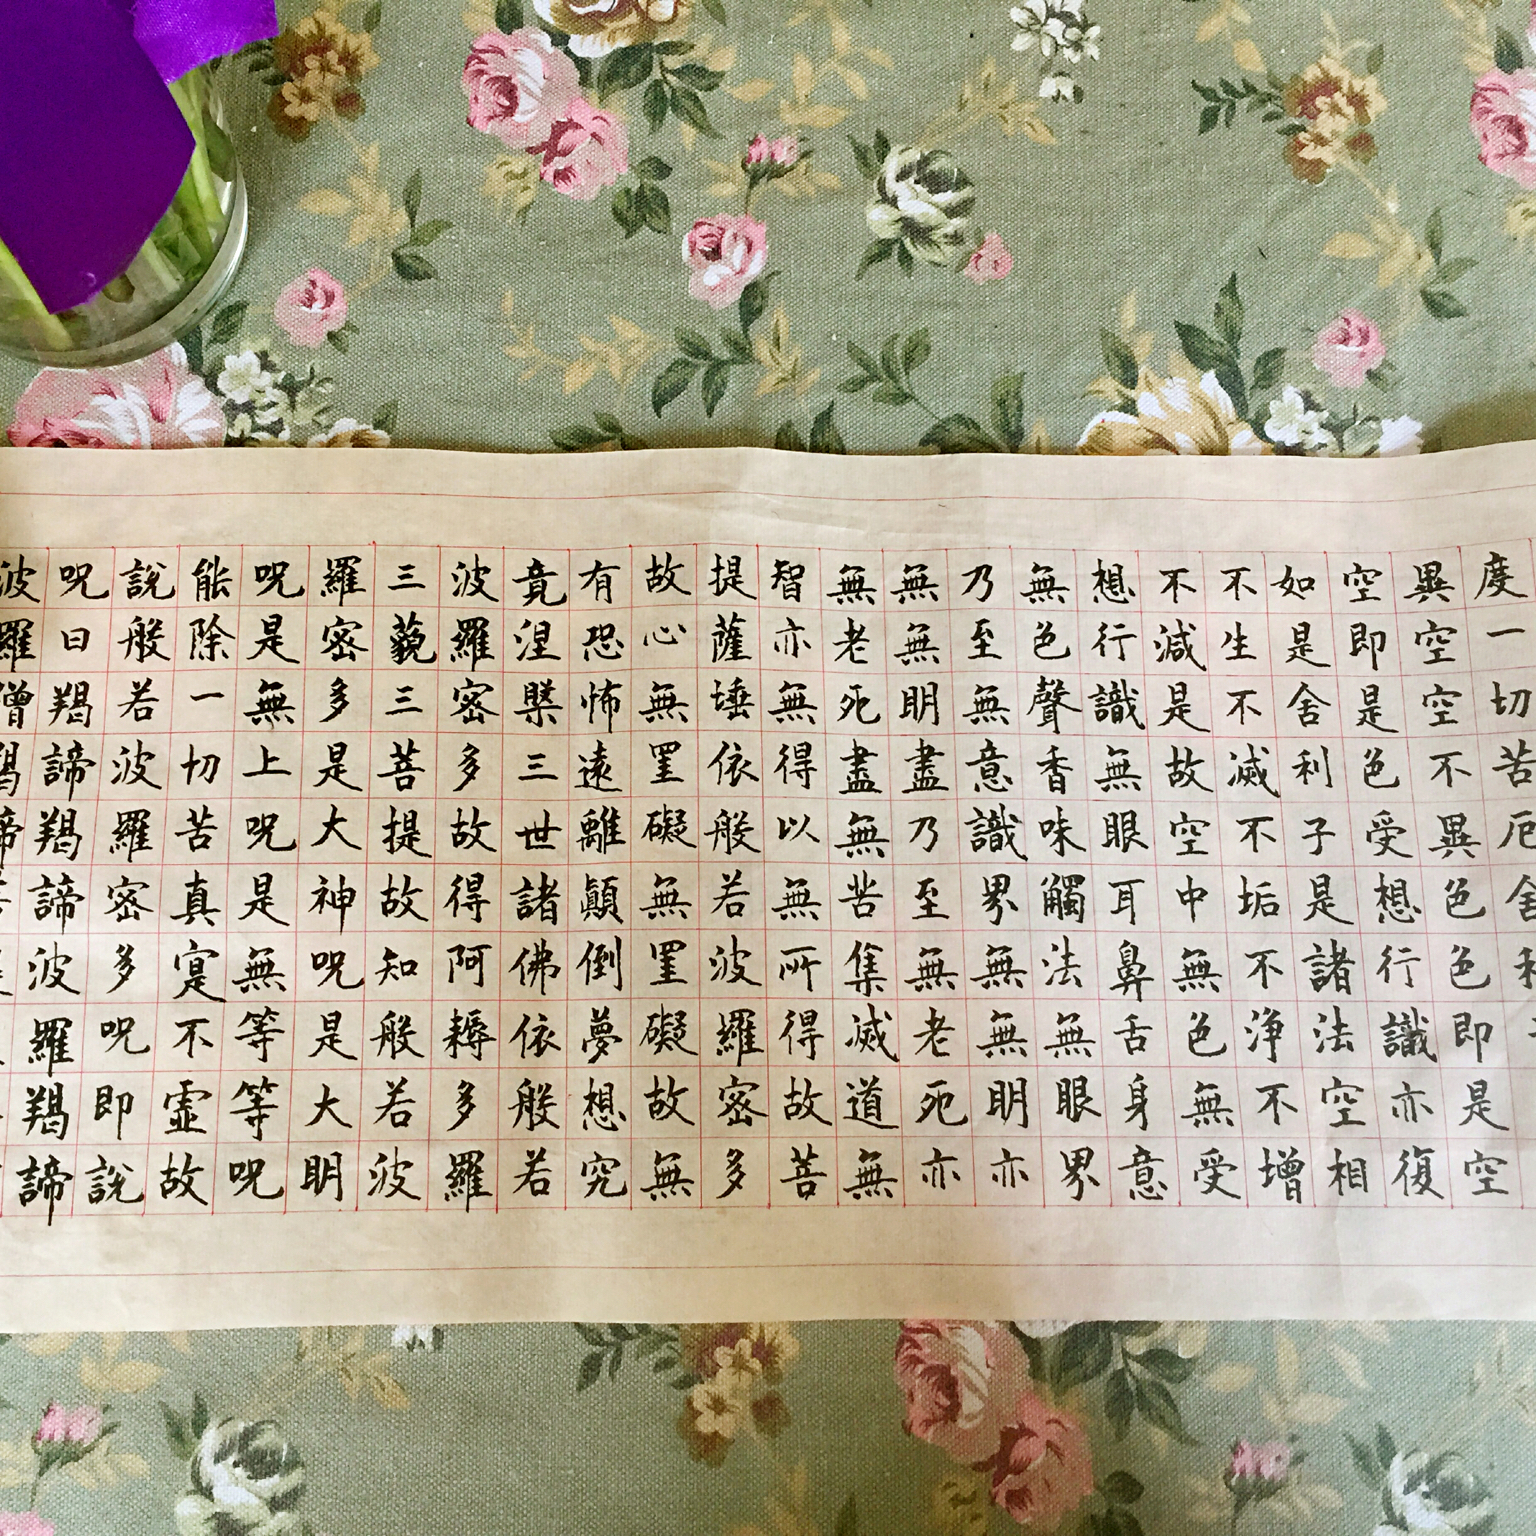 度一切苦厄舍
異空空不異色色即是空
空即是色受想行識亦復
如是舍利子是諸法空相
不生不滅不垢不浄不增
不減是故空中無色無受
想行識無眼耳鼻舌身意
無色聲香味觸法無眼界
乃至無意識界無無明亦
無無明盡乃至無老死亦
無老死盡無苦集滅道無
智亦無得以無所得故菩
提薩埵依般若波羅密多
故心無罣礙無罣礙故無
有恐怖遠離顛倒夢想究
竟涅槃三世諸佛依般若
波羅密多故得阿耨多羅
三藐三菩提故知般若波
羅密多是大神呪是大明
呪是無上呪是無等等呪
能除一切苦真寔不虛故
說般若波羅密多呪即說
呪曰羯諦羯諦波羅羯諦
波羅僧羯諦